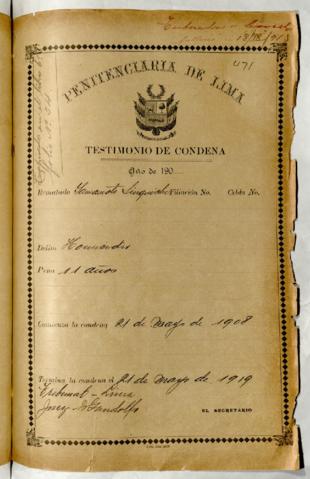 13/12/913
471
PENITENCIARIA DE LIMA
TESTIMONIO DE CONDENA
Año de 190
Rematado Filiación No. Celda No.
Delito Homicidio
Pena 11 años
Comienza la condena 21 de mayo de 1908
Termina la condena el 21 de mayo de 1919
Tribunal - Lima
Juez
EL SECRETARIO